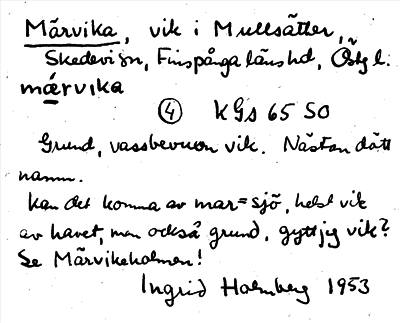 Märvika, vik i Mullsätter,
Skedevi sn, Finspånga läns hd, Östg l.
mǽrvika
④ KGs 65 SO
Grund, vassbevuxen vik. Nästan dött
namn.
Kan det komma av mar = sjö, helst vik
av havet, men också grund, gyttjig vik?
Se Märvikeholmen!
Ingrid Holmberg 1953